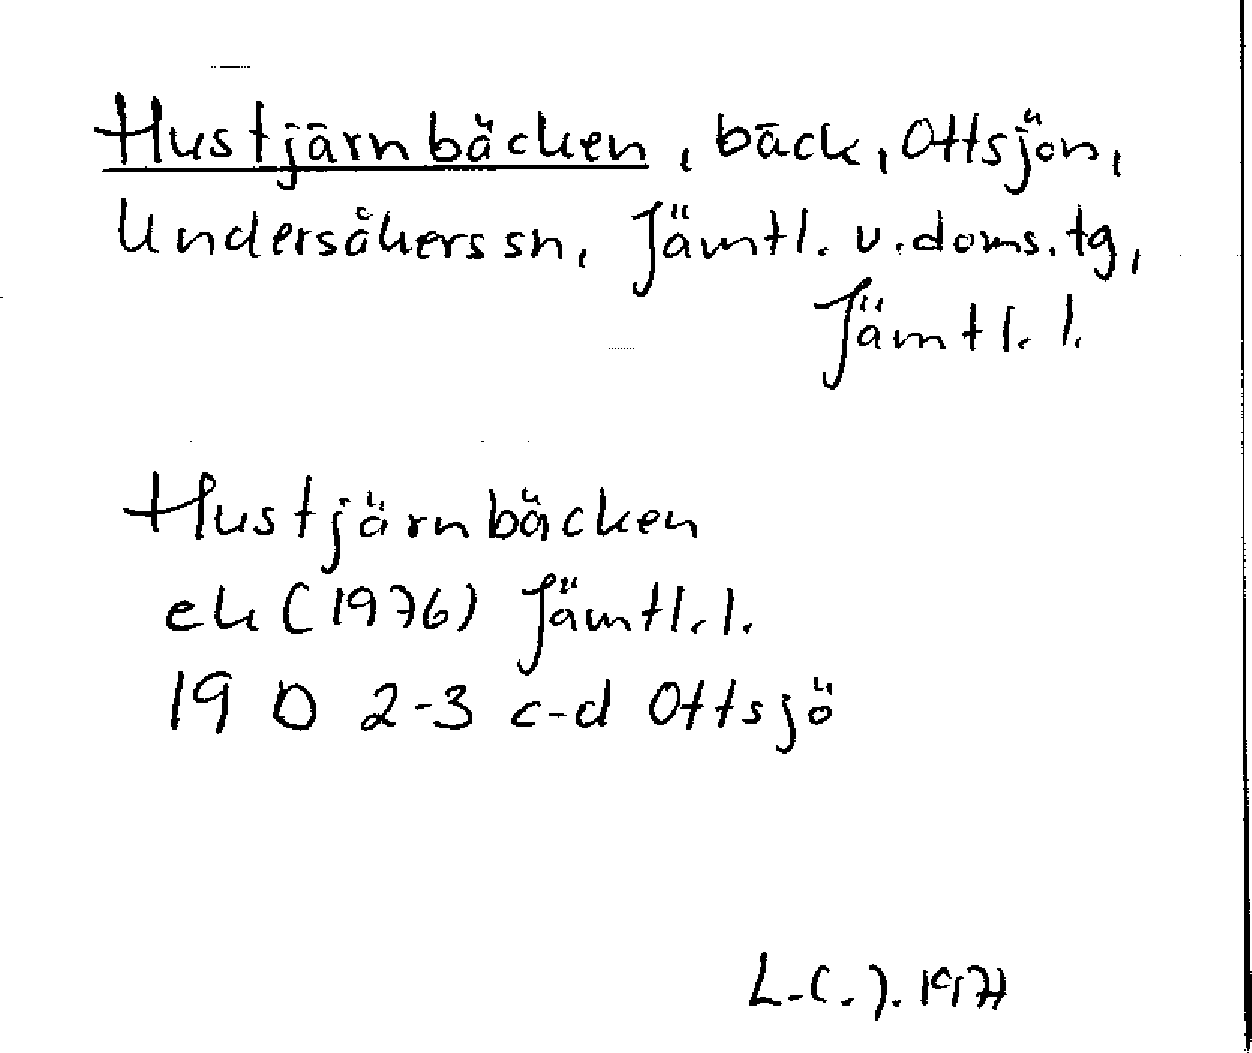 Hustjärnbäcken, bäck, Ottsjön,
Undersåkers sn, Jämtl. v. doms. tg,
Jämtl. l.
Hustjärnbäcken
ek (1976) Jämtl. l.
19 D 2-3 c-d Ottsjö